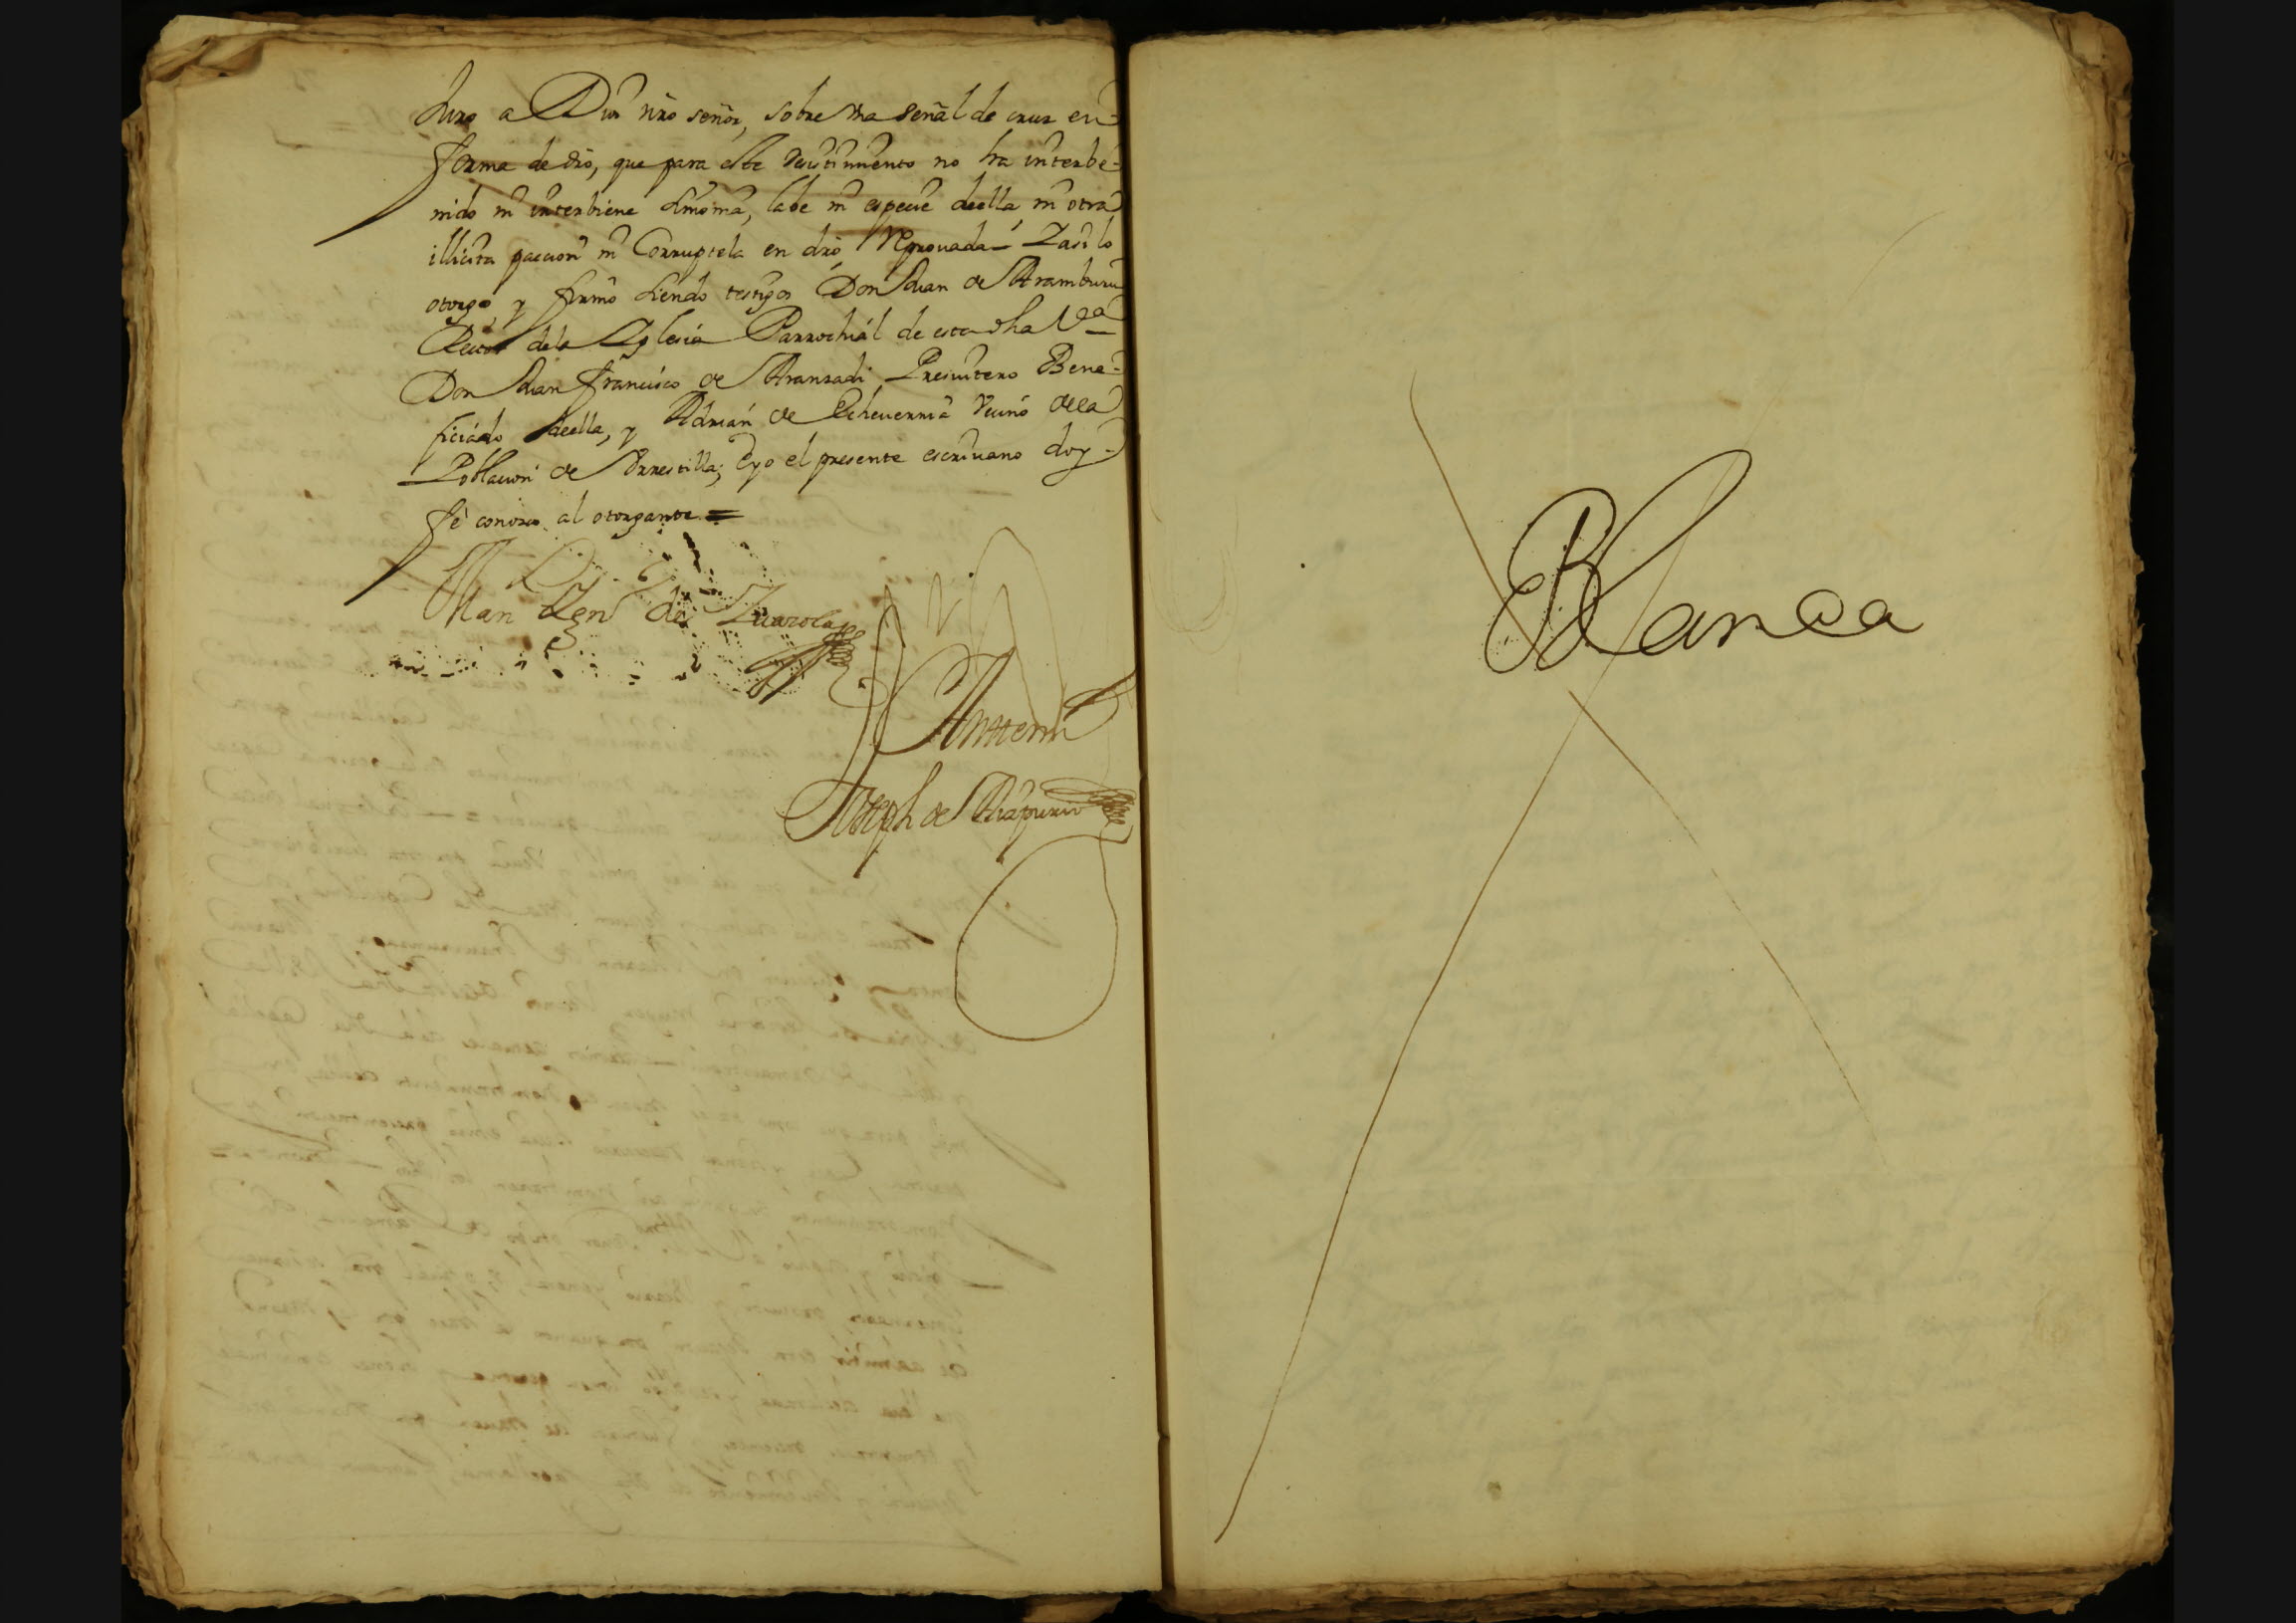 Juro a Dios nrõ señor, sobre vna señal de cruz en
forma de drõ, que para este desistimiento no ha interbe-
nido ni interbiene simonia, labe ni especie de ella, ni otra
illicita paccion ni Corruptela en drõ Reprouada; Y asi lo
otorgo, y firmo siendo testigos Don Juan de Aramburu
Rector de la Iglesia Parrochial de esta dha Vª
Don Juan francisco de Aranzadi Presuitero Bene-
ficiado de ella, y Adrian de Echeuerria Vecino de la
Poblacion de Vrrestilla; e yo el presente escriuano doy
fè conozco al otorgante =
de Zuazola
Ante mi
Joseph de
Blanca